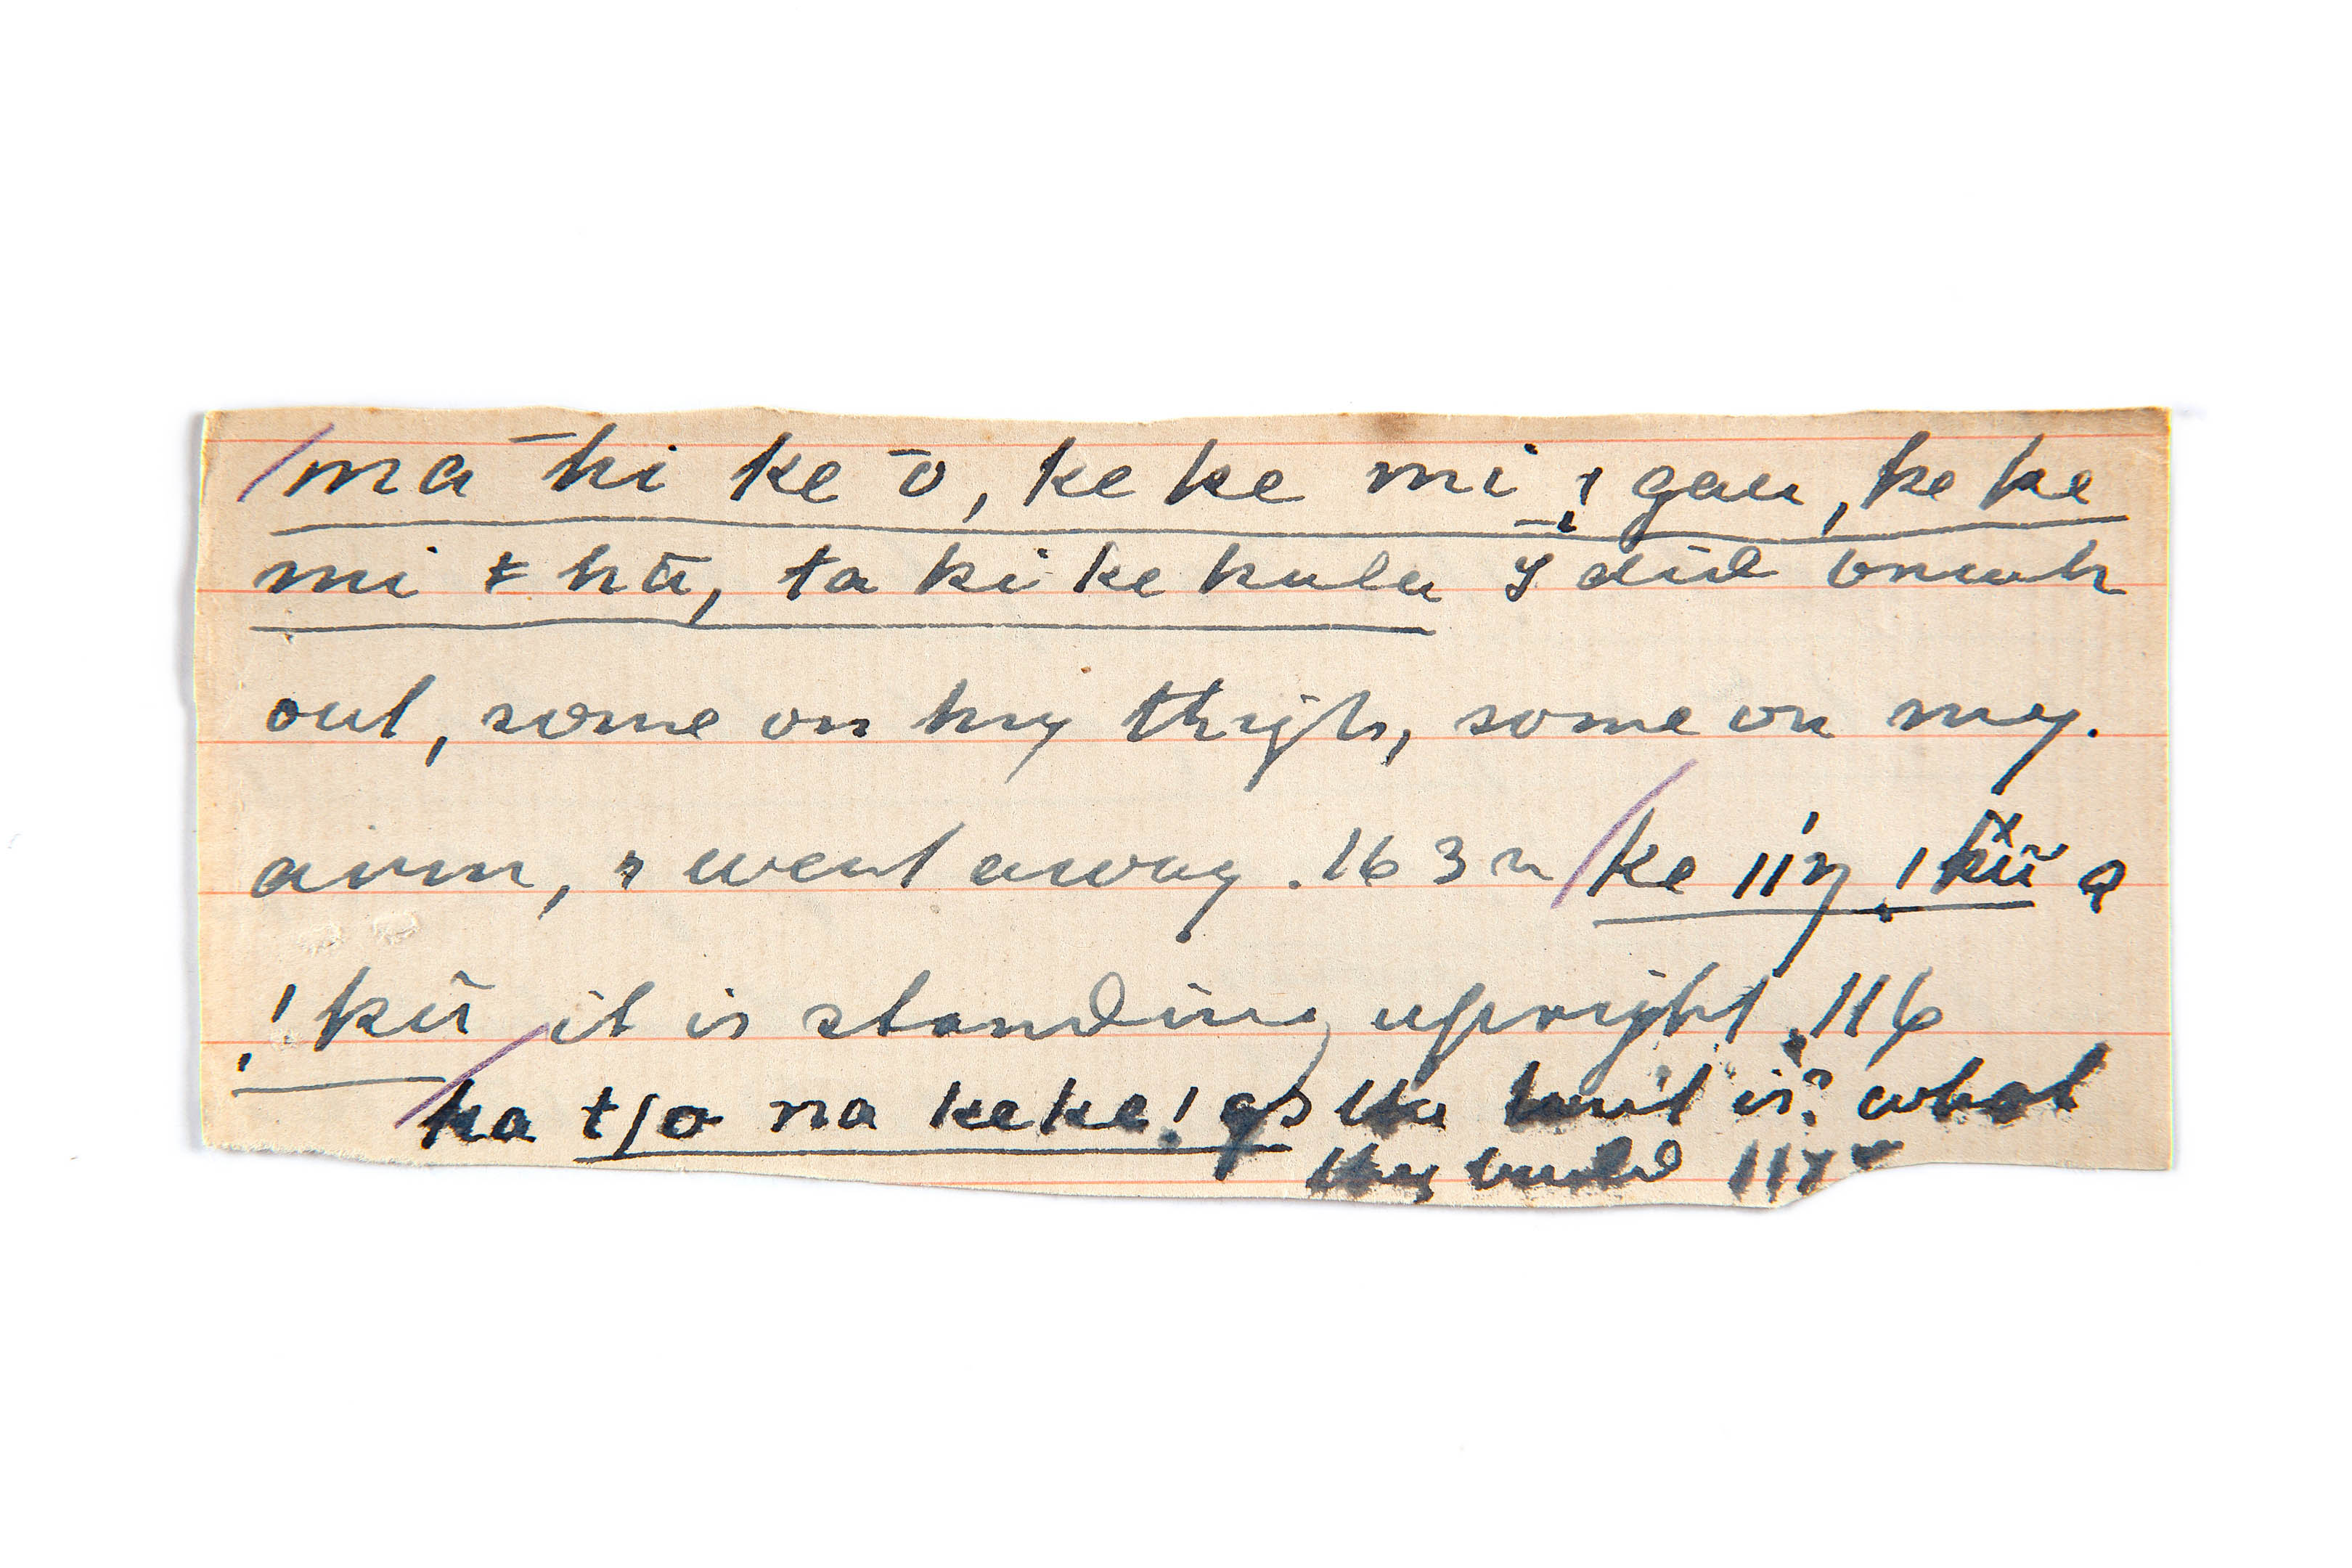 /mā hi ke ō, ke ke mi ḭ gau, ke ke
mi ǂ hū, ta ki ke hulu I did brush
out, some on my thigh, some on my.
arm, & went away. 163 n /ke ǁŋ ! kū a
! kū it is standing upright. 116
/ka tʃo na keke! as the hut is? what
they build 117